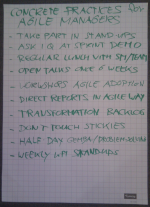 CONCRETE PRACTICES FOR
AGILE MANAGERS
- TAKE PART IN STAND-UPS
- ASK 1 Q AT SPRINT DEMO
- REGULAR LUNCH WITH
- OPEN TALKS ONCE 6 WEEKS
- WORKSHOPS AGILE ADOPTION
- DIRECT REPORTS IN AGILE WAY
- TRANSFORMATION BACKLOG
- DON'T TOUCH STICKIES
- HALF DAY GEMBA/PROBLEM SOLVING
- WEEKLY STANDUPS